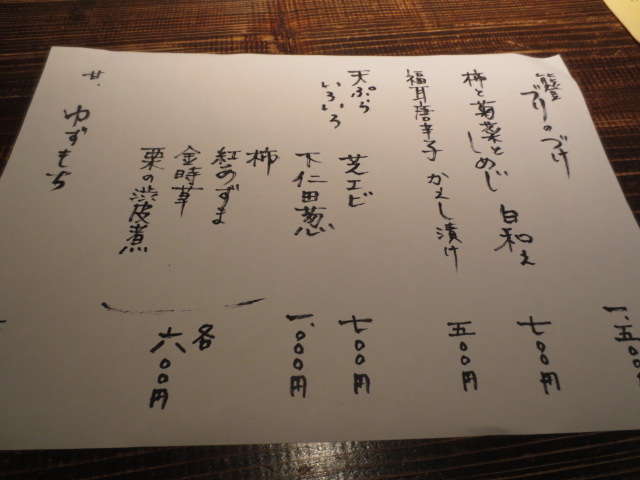 ブリのづけ
一、五〇〇
柿と菊菜と
しめじ 白和え
七〇〇円
福耳唐辛子 かえし漬け
五〇〇円
天ぷら
いろいろ
芝エビ
七〇〇円
下仁田葱
一、〇〇〇円
柿
紅あずま
金時草
栗の渋皮煮
各
六〇〇円
甘、ゆずもち